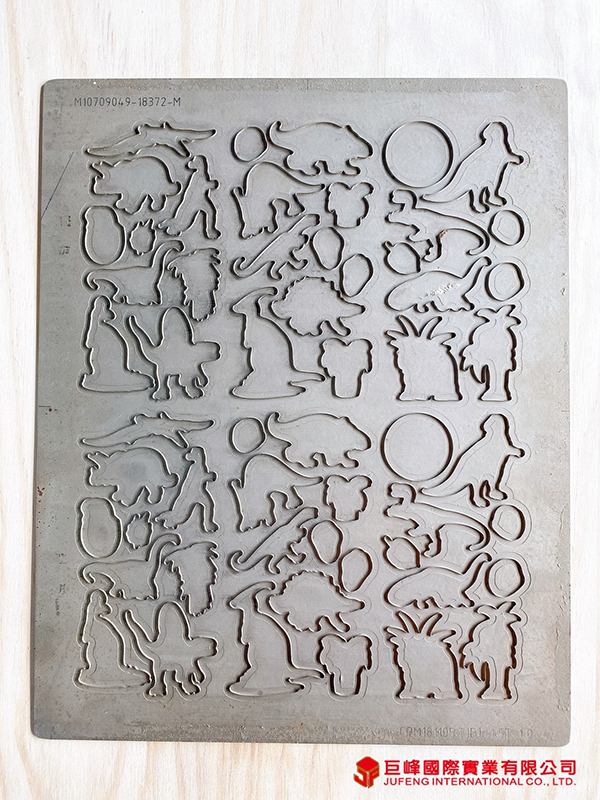 M10709049-18372-M
巨峰國際實業有限公司
JUFENG INTERNATIONAL CO., LTD.